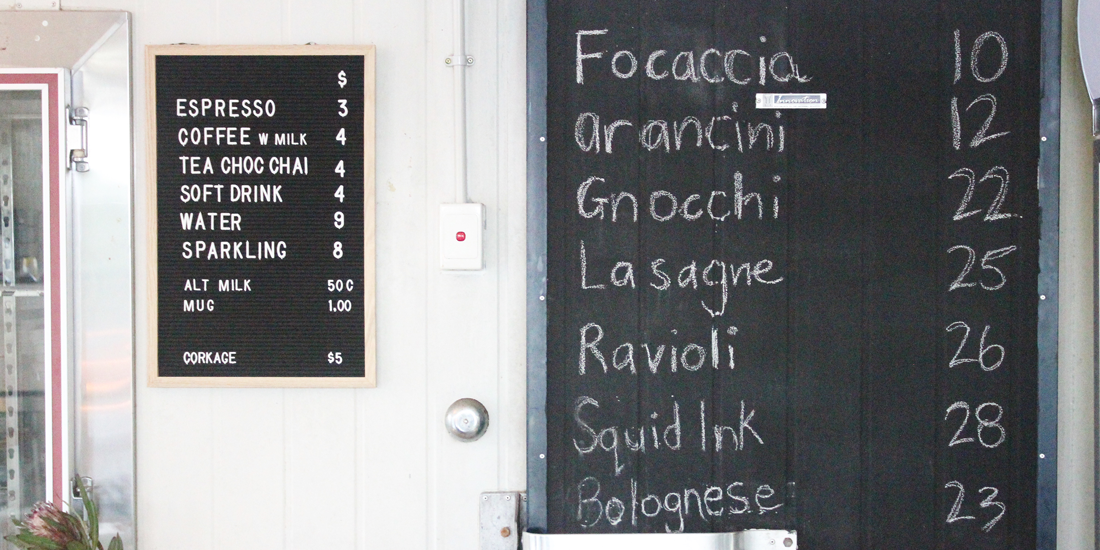 $
ESPRESSO 3
COFFEE W MILK 4
TEA CHOC CHAI 4
SOFT DRINK 4
WATER 9
SPARKLING 8
ALT MILK 50C
MUG 1.00
CORKAGE $5
Focaccia 10
arancini 12
Gnocchi 22
Lasagne 25
Ravioli 26
Squid Ink 28
Bolognese 23